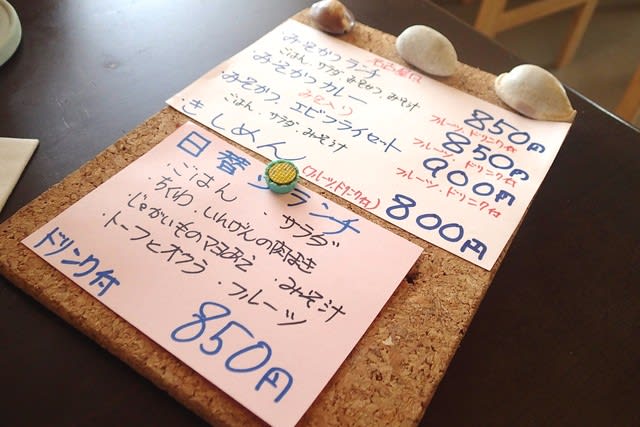 名古屋風
みそかつランチ 850円
ごはん、サラダ、みそかつ、みそ汁 フルーツ、ドリンク付
みそかつカレー 850円
みそ入り フルーツ・ドリンク付
みそかつ、エビフライセット 900円
ごはん、サラダ、みそ汁 フルーツ、ドリンク付
きしめん (フルーツ、ドリンク付) 800円
日替りランチ
・ごはん ・サラダ
・ちくわ、いんげんの肉まき
・じゃがいものマヨあえ ・みそ汁
・トーフとオクラ ・フルーツ
ドリンク付 850円